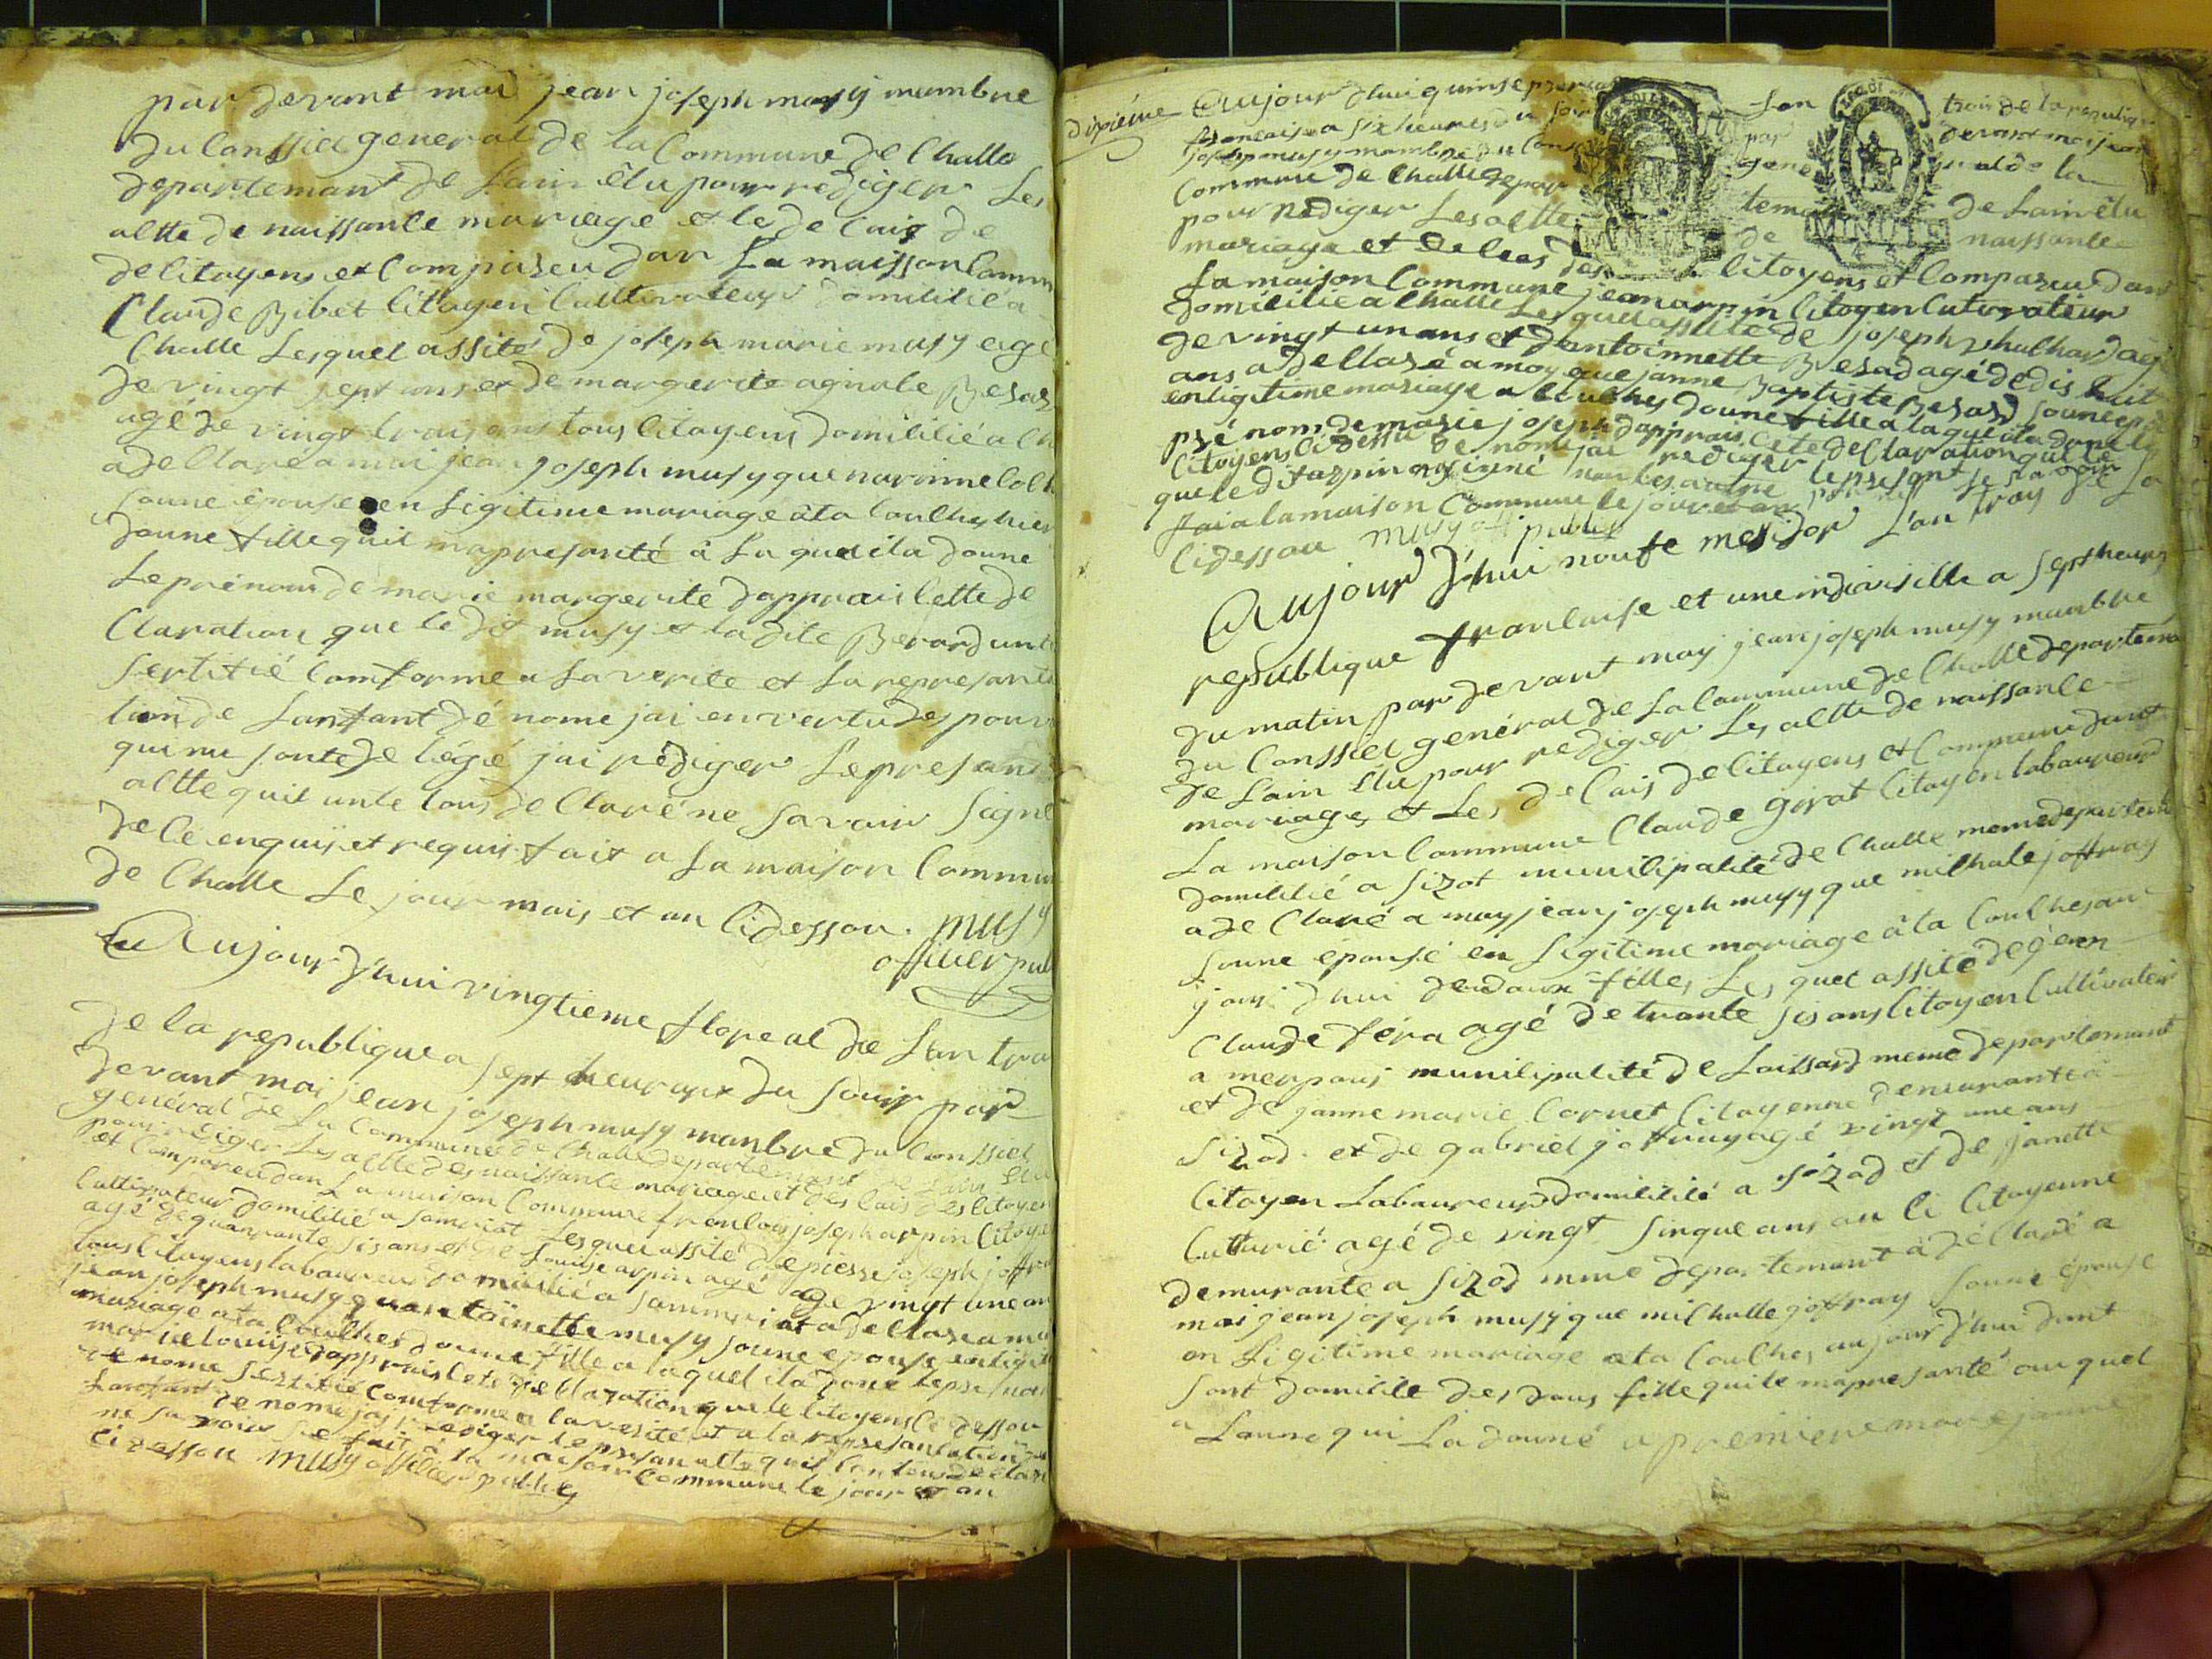 par devant moi jean joseph musy mambre
du Conssiel general de la Commune de Challe
departemant de Lain êlu pour rediger Les
altte de naissante mariage et le de Cais de
de Citoyens et Compareu dan La maisson Comm
Claude Bibet Citoyen Cultivateur domicilié a
Challe Lesquel assité de joseph marie musy agé
de vingt sept ans et de margerite agnale
agé de vingt trois ans tous Citoyens domicilié a
a de Claré a moi jean joseph musy que
soune épouse en Ligitime mariage âta Coulhes hier
doune fille quil ma presanté â La quel ila doune
Le prénom de marie margerite dapprais Cette de
Claration que le dit musy et la dite Berard unt
Sertifié Comforme a La verite et La represanta
tion de Lanfant dé nomé jai en vertu des pouv
qui me sonte de légé jai rédiger Le presans
altte quil unte tous de Claré ne savoir signe
de Ce enquis et requis fait a La maison Commun
de Challe Le jour mois et an Cidessou. musy
officier pub
Aujour d'hui vingtieme floreal de Lan troi
de la republique a sept heurs du soir par
devant moi jean joseph musy manbre du Conssiel
général de La Commune de Challe departemant de Lain elu
pour rediger Les altte de naissante mariage et des Cais des Citoyen
et Compareu dan La maison Commune francois joseph arpin Citoye
Cultivateur domicilié a Samériat Lesquel assité de pierre joseph joffra
agé de quarante sis ans et de Louise arpin agé age vingt une an
tous Citoyens laboureur domicilié a sammeriat a de Clare a mo
jean joseph musy que antoinette musy soune epouse en Ligit
mariage ata Coulhes doune fille a laquel ila doné Le prénom
marie louise dapprais Cete de Claration que le Citoyens Ci dessou
de nome sertifié Comforme a la verité et a la represantation de
Lanfant de nome jai rediger le presan altte quil on tous de Claré
ne savoir de fait à la maison Commune le jour et an
Cidessou musy officier publiq
dixiéme Aujour dhui quinse prerial Lan trois de la republique
francaise a six heures du soir par devant moi jean
joseph musy mambre du Cons general de la
Commune de Challe depar temant de Lain êlu
pour rediger Les altte de naissante
mariage et de Ces des Citoyens et Compareu dans
La maison Commune jean arpin Citoyen Cutivateur
domicilie a Challe Lesquel assité de joseph agé
de vingt un ans et dantoinnette Berad agé de dis huit
ans a de Claré a moy que janne Baptiste Berard soune epouse
en ligitime mariage a Coulhes doune fille a la quel ila doné le
prénom de marie joseph dapprais Cete de Claration que le
Citoyens Cidessu de nome jai rediger Le presont
que le dit arpin a signé non les autre
fai a la maison Commune le jour et an
Cidessou musy off publiq
Aujour d'hui noufe mesidor L'an troy de La
republique francaise et une indivisille a sept heurs
du matin par devant moy jean joseph musy manbre
du Conssiel general de La Commune de Challe departema
de Lain êlu pour rediger Les altte de naissante
mariages et Les de Cais de Citoyens et Compareu dant
La maison Commune Claude girot Citoyen laboureur
domicilié a Sizot municipalité de Challe meme departemt
a de Claré a moy jean joseph musy que michale joffray
soune épousé en Ligitime mariage âta Coulhes au
jour d'hui de daux filles Les quel assité de jean
Claude féra agé de trante sis ans Citoyen Cultivateur
a merpuis municipalité de Laissard meme departemant
et de janne marie Cornet Citoyenne demurante à
Sizod. et de gabriel joffray agé vingt une ans
Citoyen Laboureur domicilié a sizod et de janette
Cutturié agé de vingt sinque ans au si Citoyenne
demurante a sizod mme departemant a dé Claré a
moi jean joseph musy que michalle joffray soune épouse
en Ligitime mariage ata Coulhes au jour d'hui dant
sont domicile des daus fille quile ma presanté au quel
a Laune qui La douné a premiere marie janne